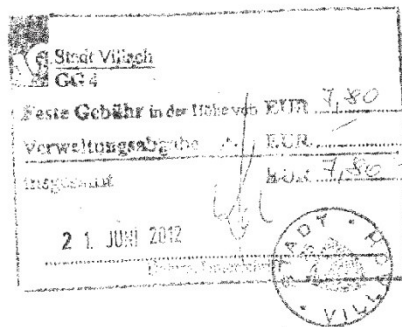 Stadt Villach
GG 4
Feste Gebühr in der Höhe von EUR 7,80
Verwaltungsabgabe EUR
insgesamt EUR 7,80
21. JUNI 2012
STADT VILLACH